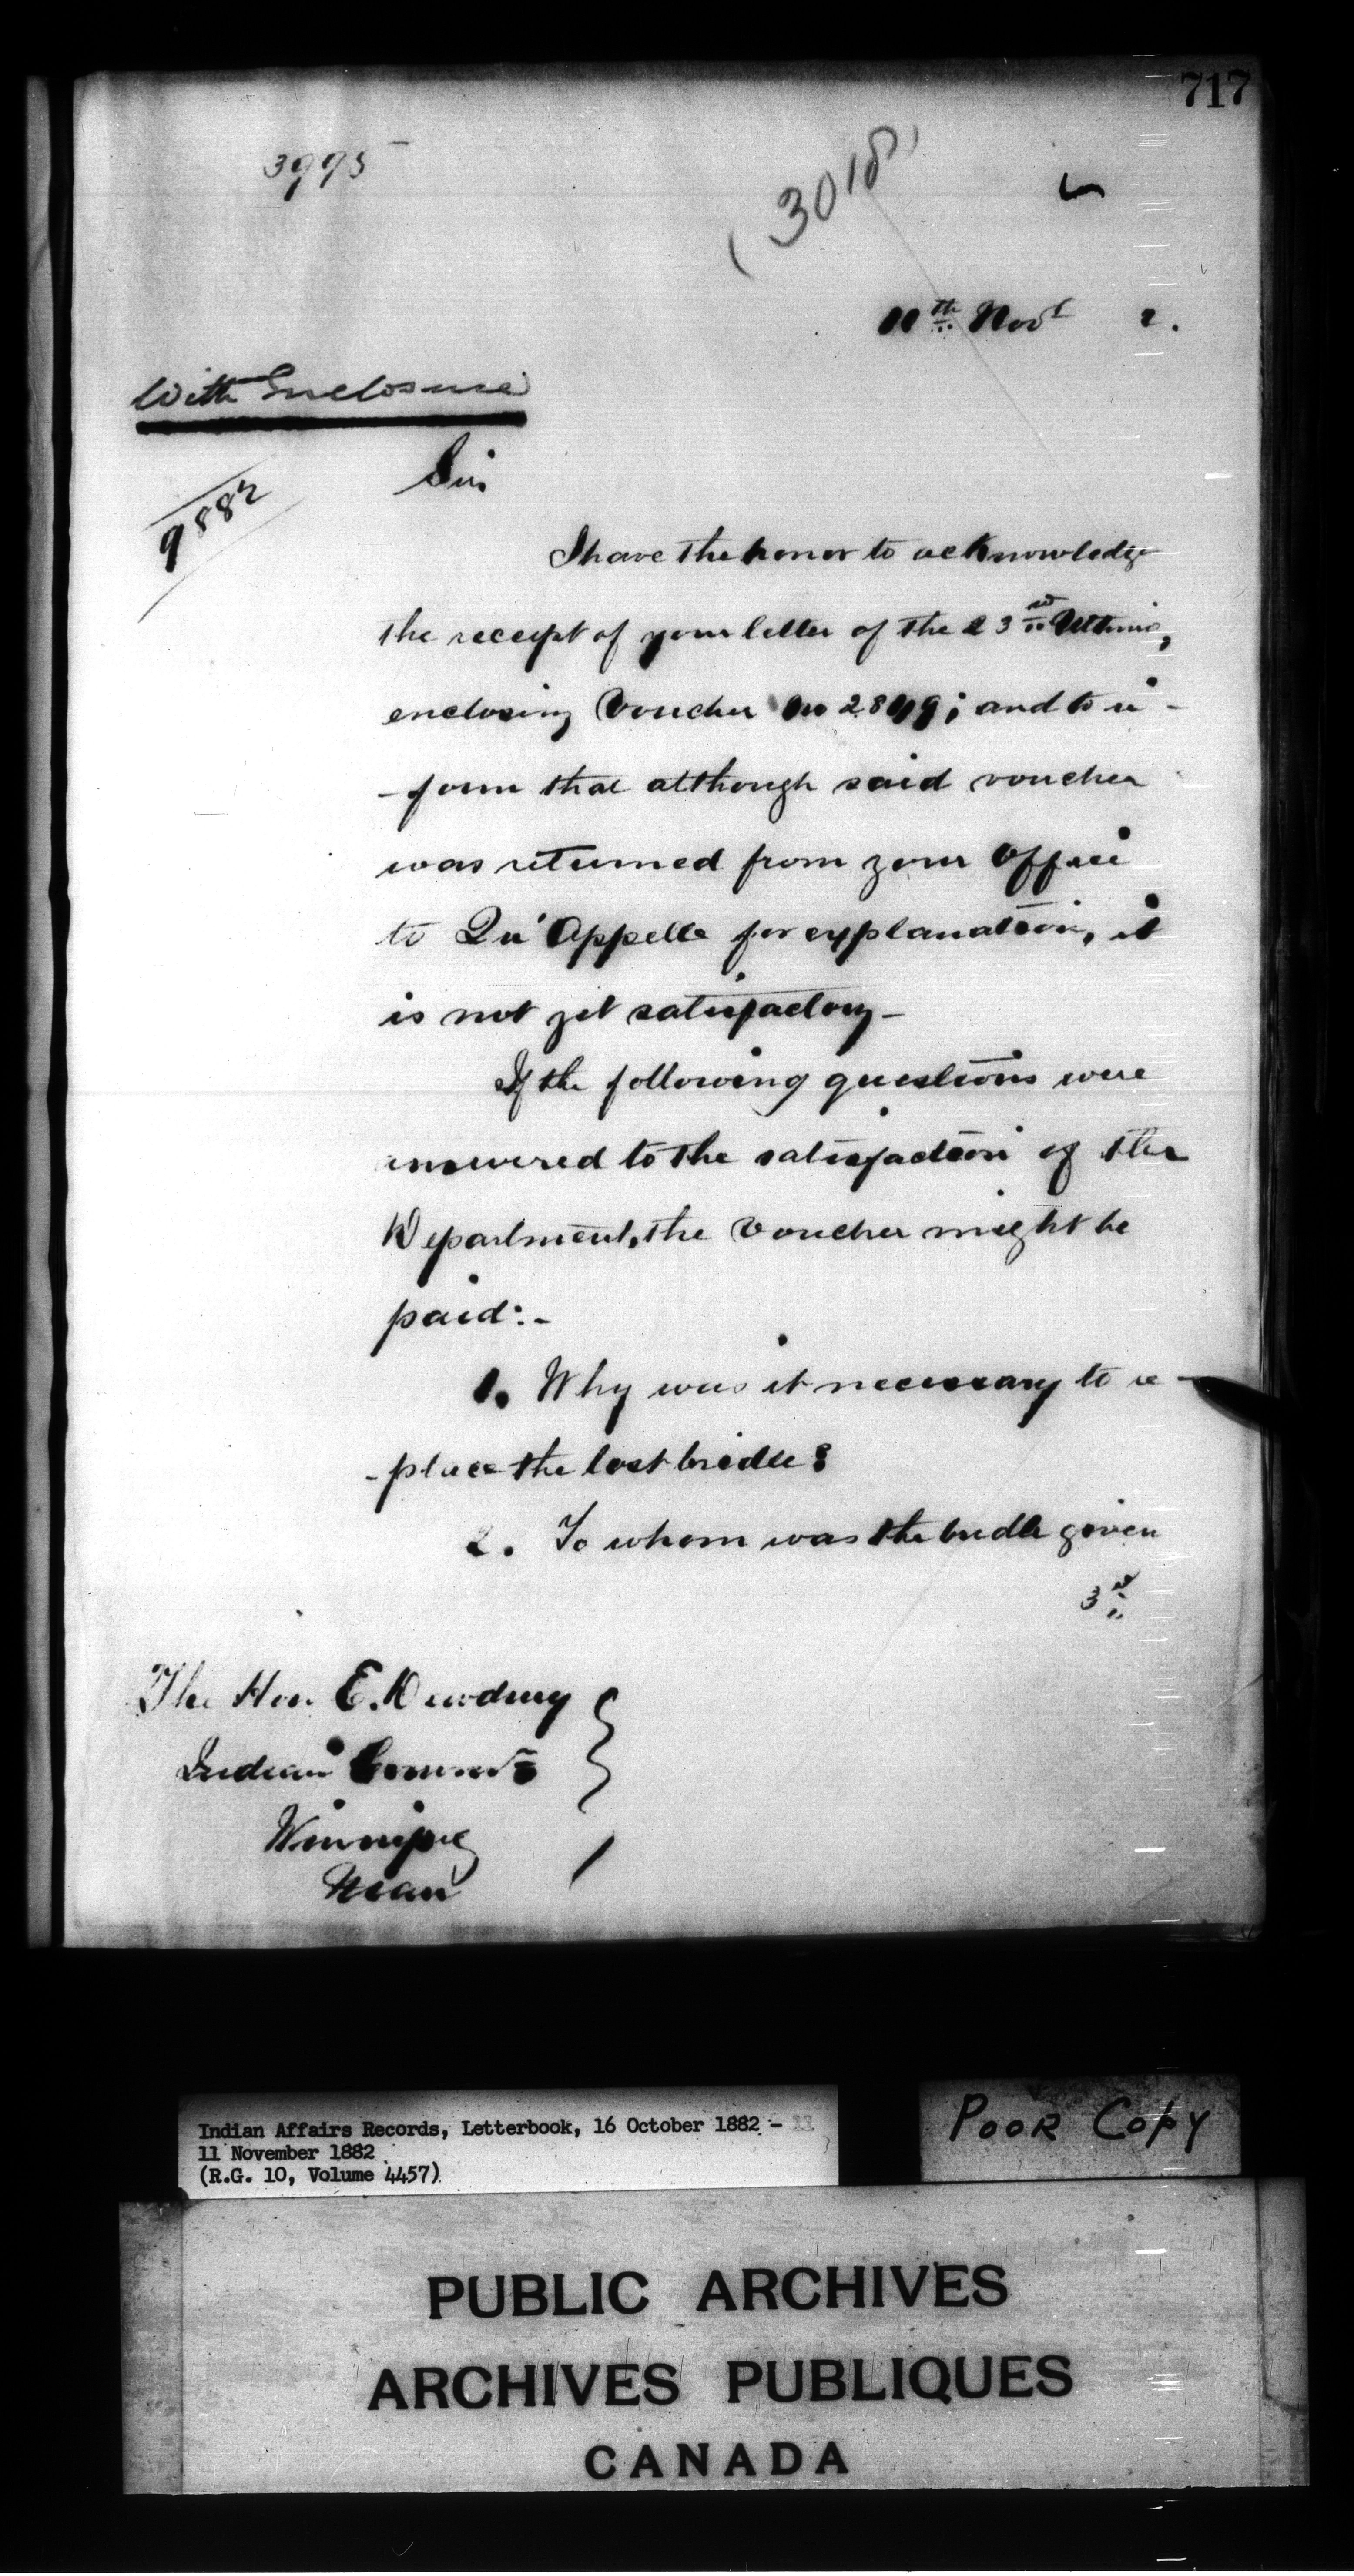 717
3995
(3018)
Novr 2.
With Enclosure
9882
Sir
I have the honor to acknowledge
the receipt of your letter of the 23rd Ultimo,
enclosing Voucher No ; and to in-
-form that although said voucher
was returned from your Office
to Qu'Appelle for explanation, it
is not yet satisfactory_
If the following questions were
answered to the satisfaction of the
Department, the Voucher might be
paid:-
1. Why was it necessary to re-
-place the lost bridle?
2. To whom was the bridle given
3rd
The Hon. E. Dewdney
Indian Commr
Winnipeg
Man
Indian Affairs Records, Letterbook, 16 October 1882 -
11 November 1882
(R.G. 10, Volume 4457)
POOR COPY
PUBLIC ARCHIVES
ARCHIVES PUBLIQUES
CANADA